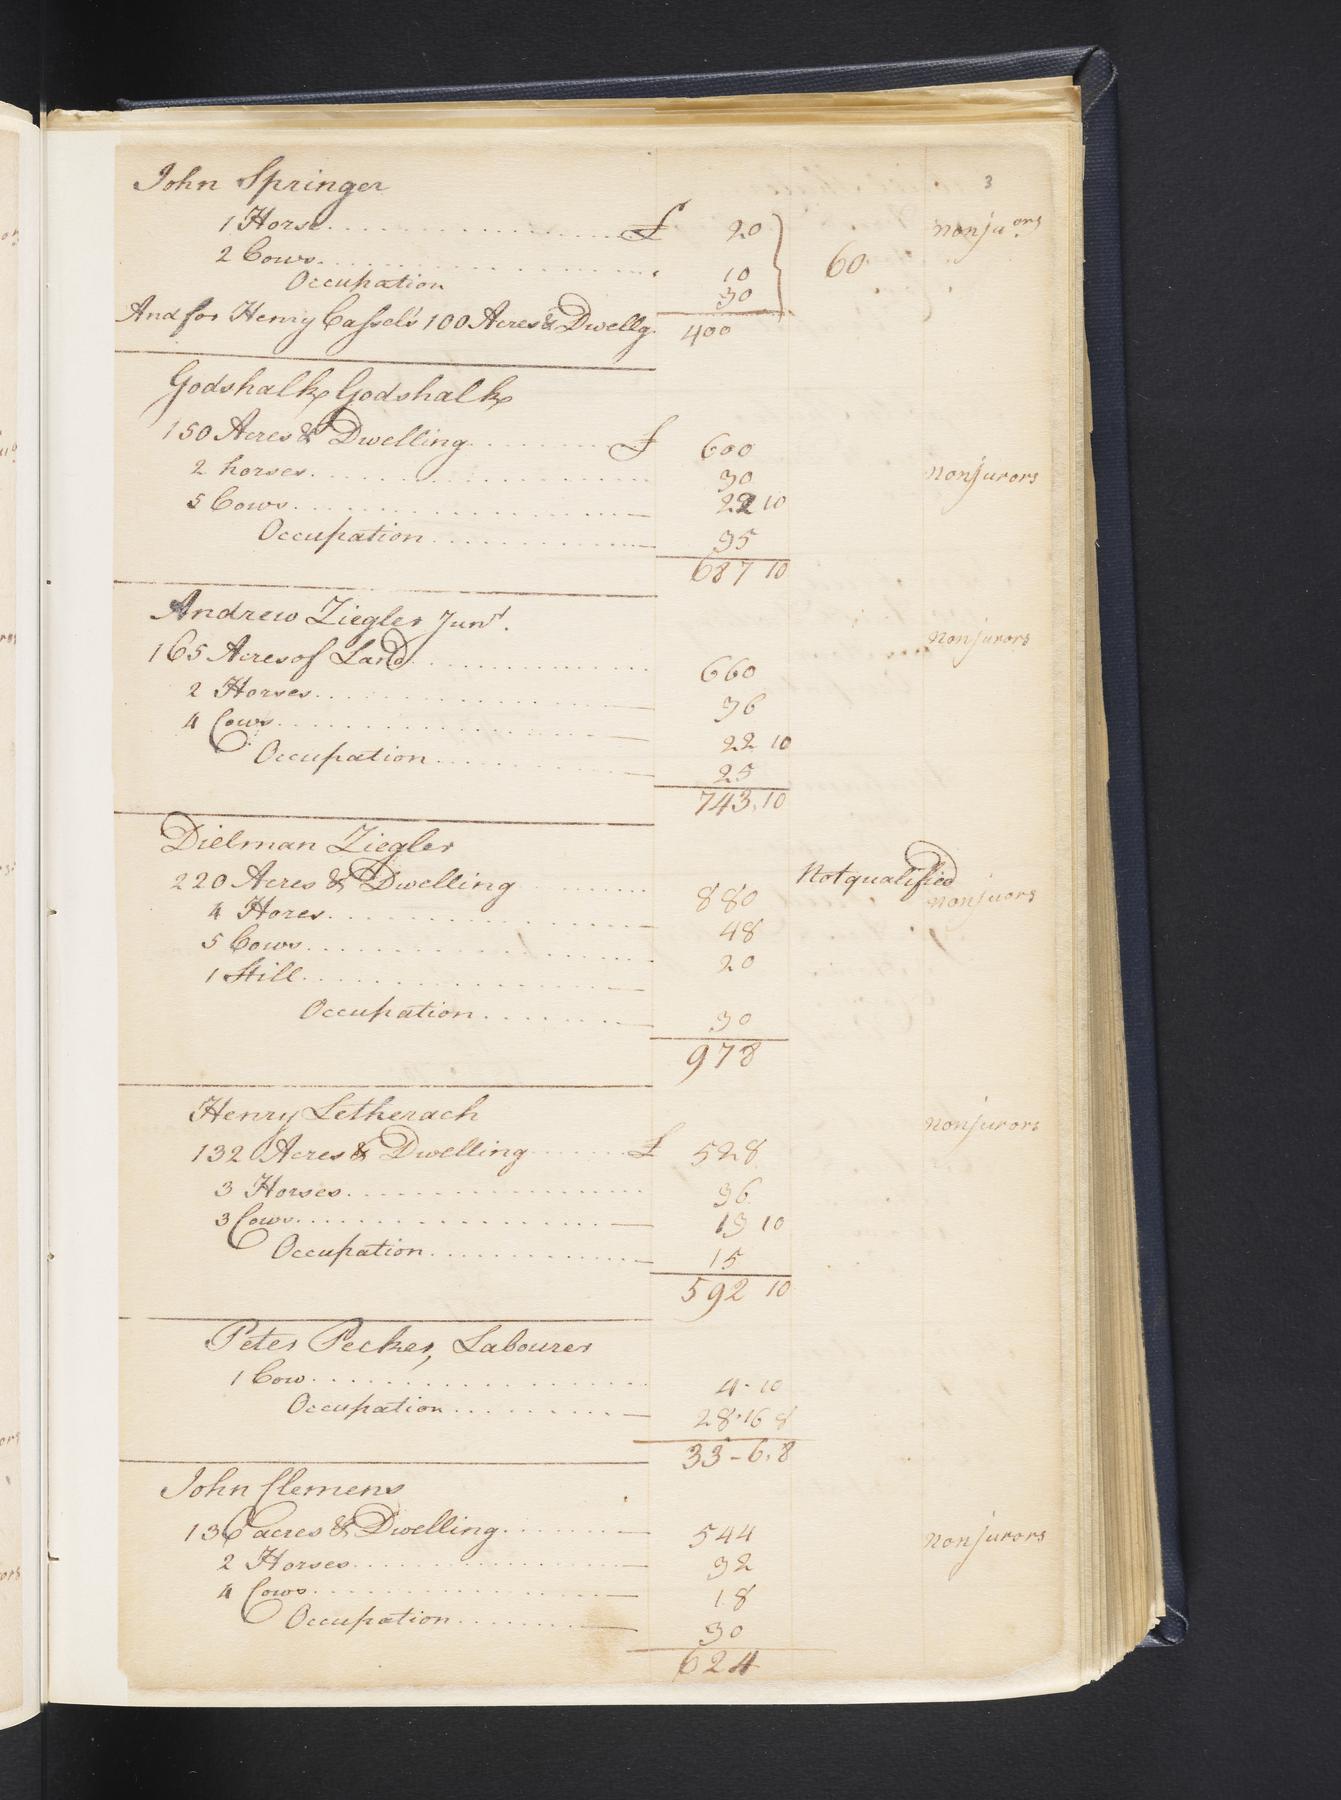 3
John Springer
1 Horse £ 20 nonjuors
2 Cows 10 60
Occupation 30
And for Henry Cassel's 100 Acres & Dwellg. 400
Godshalk Godshalk
150 Acres & Dwelling £ 600
2 horses 30 nonjurors
5 Cows 22 10
Occupation 35
687 10
Andrew Ziegler Junr. nonjurors
165 Acres of Land 660
2 Horses 36
4 Cows 22 10
Occupation 25
743.10
Dielman Ziegler
220 Acres & Dwelling 880 Not qualified nonjuors
4 Hores 48
5 Cows 20
1 Still
Occupation 30
978
Henry Letherach nonjurors
132 Acres & Dwelling £ 528
3 Horses 36
3 Cows 13 10
Occupation 15
592 10
Peter Pecker, Labourer
1 Cow 4-10
Occupation 28.16 8
33-6.8
John Clemens
136 acres & Dwelling 544 nonjurors
2 Horses 32
4 Cows 18
Occupation 30
624